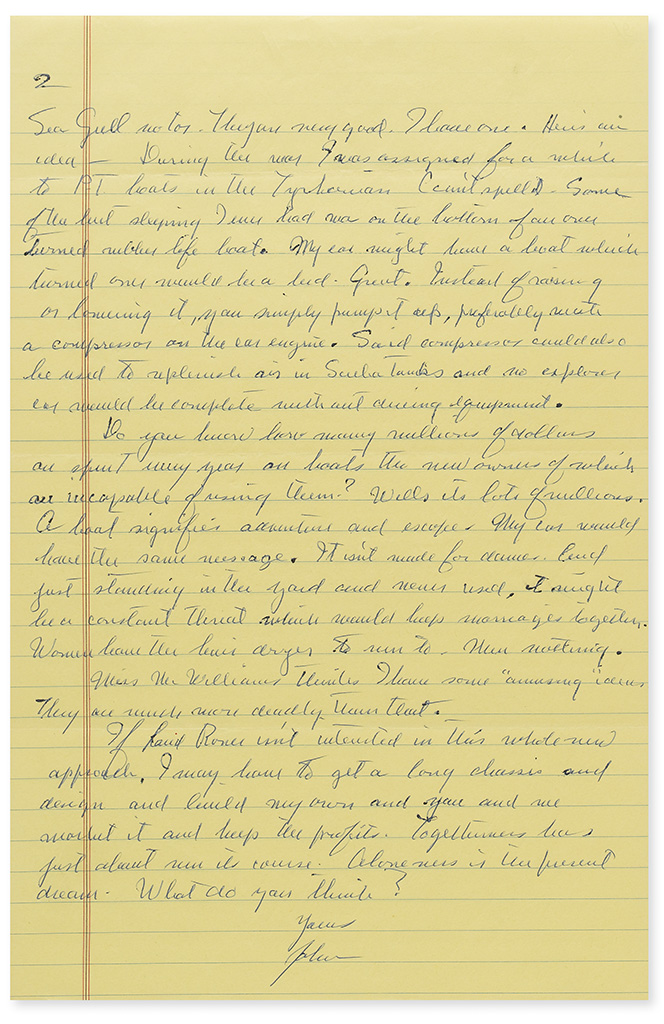 2
Sea Gull motor. They are very good. I have one. Here's an
idea — During the war I was assigned for a while
to PT boats in the Tyrhenian (can't spell it - Some
of the best sleeping I ever had was on the bottom of an over
turned rubber life boat. My car might have a boat which
turned over would be a bed. Great. Instead of raising
or lowering it, you simply pump it up, preferably with
a compressor on the car engine. Said compressor could also
be used to replenish air in Scuba Tanks and no explorer
car would be complete without diving equipment.
Do you know how many millions of dollars
are spent every year on boats the new owners of which
are incapable of using them? Wells its lots of millions.
A boat signifies adventure and escape. My car would
have the same message. It isn't made for dames. And
just standing in the yard and never used, it might
be a constant threat which would keep marriages together.
Women have the hair dryer to run to. Men nothing.
Miss McWilliams thinks I have some "amusing" ideas
They are much more deadly than that.
If Land Rover isn't interested in this whole new
approach, I may have to get a long chassis and
design and build my own and you and me
market it and keep the profits. Togetherness has
just about run its course. Aloneness is the present
dream. What do you think?
Yours
John